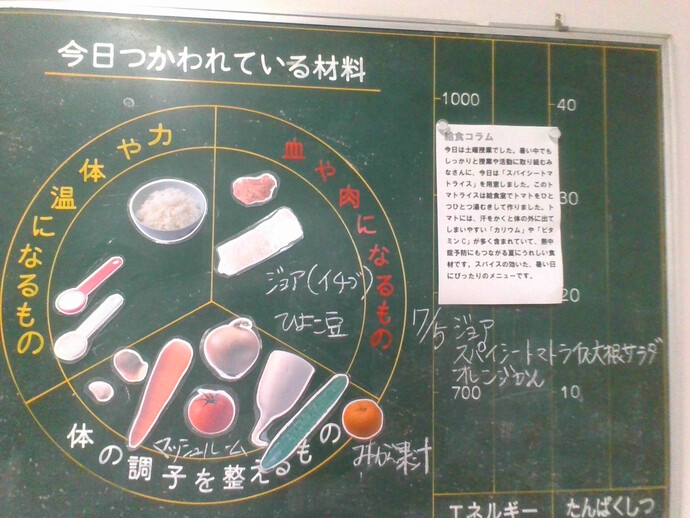 今日つかわれている材料
体温や力になるもの
血や肉になるもの
ジョア(イチゴ)
ひよこ豆
マッシュルーム
みかん果汁
体の調子を整えるもの
1000
40
30
20
700
10
給食コラム
今日は土曜授業でした。暑い中でも
しっかりと授業や活動に取り組むみ
なさんに、今日は「スパイシートマ
トライス」を用意しました。このト
マトライスは給食室でトマトをひと
つひとつ湯むきして作りました。ト
マトには、汗をかくと体の外に出て
しまいやすい「カリウム」や「ビタ
ミンC」が多く含まれていて、熱中
症予防にもつながる夏にうれしい食
材です。スパイスの効いた、暑い日
にぴったりのメニューです。
ジョア
スパイシートマトライス 大根サラダ
オレンジかん
エネルギー
たんぱくしつ